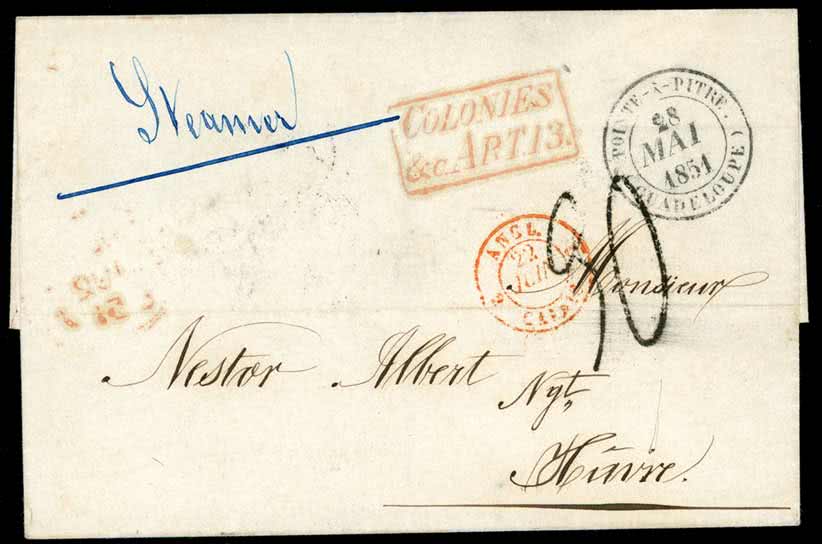 Steamer
COLONIES
&c. ART. 13.
POINTE-À-PITRE.
28
MAI
1851
(GUADELOUPE)
ANGL.
22
JUIN
CALAIS
Monsieur
Nestor Albert Ngt,
Hâvre.